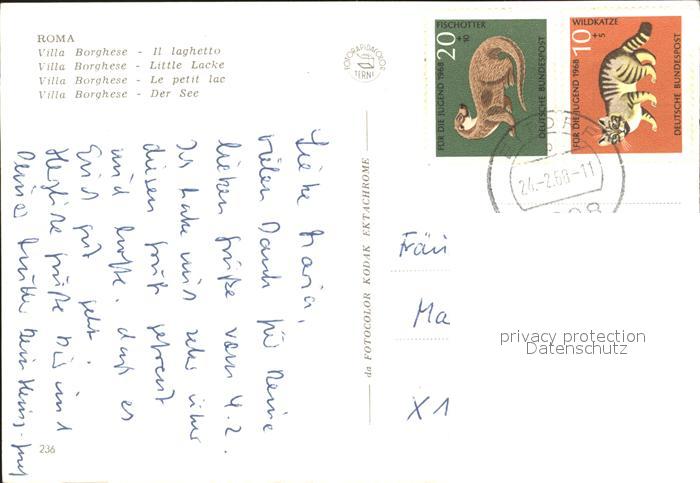 ROMA
Villa Borghese - Il laghetto
Villa Borghese - Little Lacke
Villa Borghese - Le petit lac
Villa Borghese - Der See
FOTORAPIDACOLOR
TERNI
FISCHOTTER
20 +10
FÜR DIE JUGEND 1968
DEUTSCHE BUNDESPOST
WILDKATZE
10 +5
FÜR DIE JUGEND 1968
DEUTSCHE BUNDESPOST
24.-2.68-11
Liebe Maria,
vielen Dank für Deine
lieben Grüße vom 4.2.
Ich habe mich sehr über
diesen Gruß gefreut
und hoffe, daß es
Euch gut geht.
Herzliche Grüße bis
Deine
da FOTOCOLOR KODAK EKTACHROME
Fräu
Ma
X 1
privacy protection
Datenschutz
236